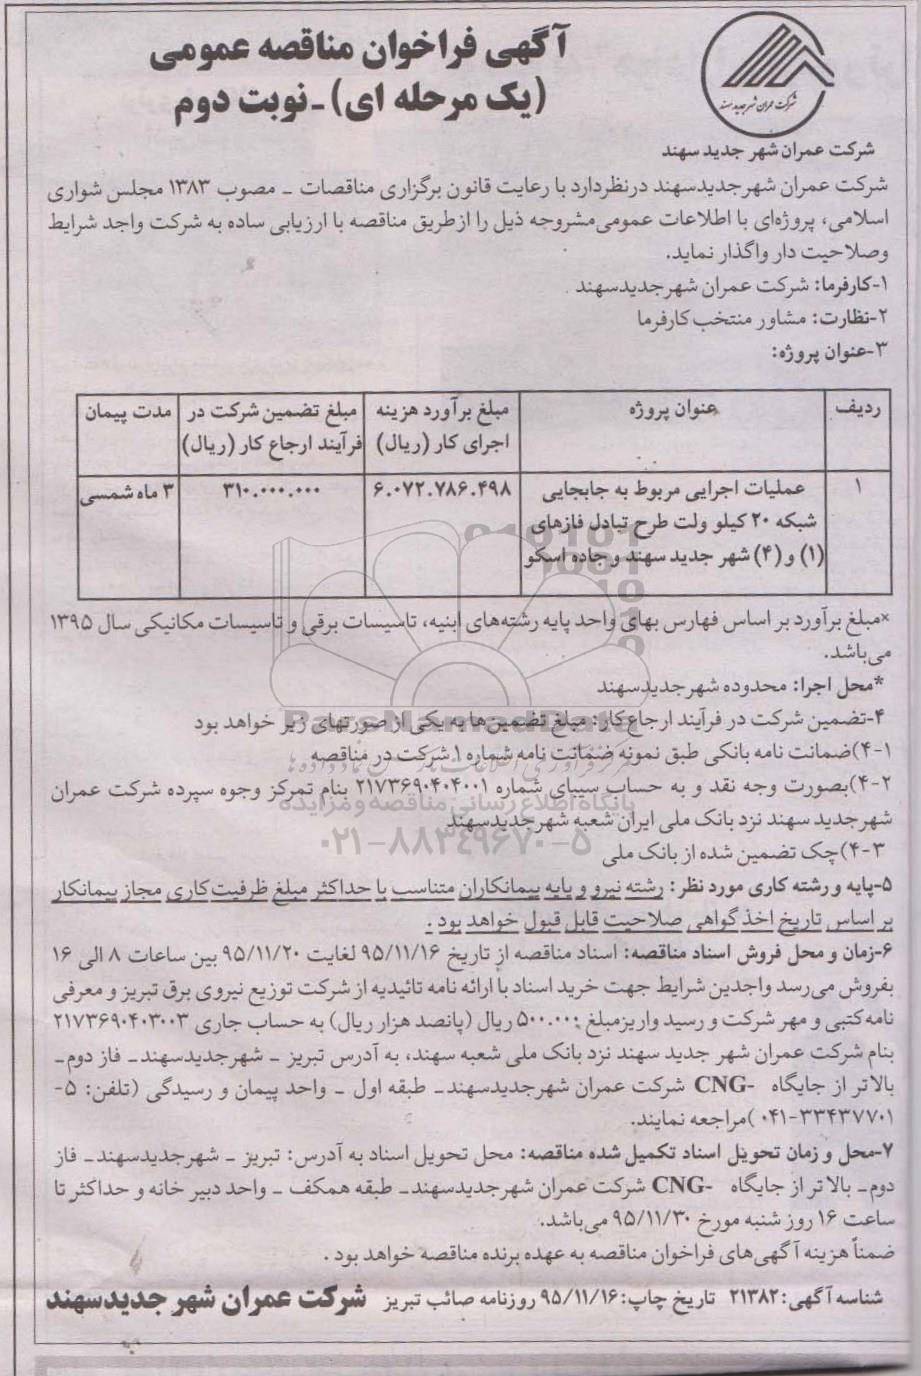 آگهی فراخوان مناقصه عمومی
(یک مرحله ای) ـ نوبت دوم
شرکت عمران شهر جدید سهند
شرکت عمران شهر جدید سهند
شرکت عمران شهرجدیدسهند درنظردارد با رعایت قانون برگزاری مناقصات ـ مصوب ۱۳۸۳ مجلس شورای
اسلامی، پروژه‌ای با اطلاعات عمومی‌مشروحه ذیل را ازطریق مناقصه با ارزیابی ساده به شرکت واجد شرایط
وصلاحیت دار واگذار نماید.
۱-کارفرما: شرکت عمران شهرجدیدسهند .
۲-نظارت: مشاور منتخب کارفرما
۳-عنوان پروژه:
ردیف عنوان پروژه مبلغ برآورد هزینه مبلغ تضمین شرکت در مدت پیمان
اجرای کار (ریال) فرآیند ارجاع کار (ریال)
۱ عملیات اجرایی مربوط به جابجایی ۶.۰۷۲.۷۸۶.۴۹۸ ۳۱۰.۰۰۰.۰۰۰ ۳ ماه شمسی
شبکه ۲۰ کیلو ولت طرح تبادل فازهای
(۱) و (۴) شهر جدید سهند و جاده اسکو
×مبلغ برآورد بر اساس فهارس بهای واحد پایه رشته‌های ابنیه، تاسیسات برقی و تاسیسات مکانیکی سال ۱۳۹۵
می‌باشد.
*محل اجرا: محدوده شهرجدیدسهند
۴-تضمین شرکت در فرآیند ارجاع کار: مبلغ تضمین‌ها به یکی از صورتهای زیر خواهد بود
ParsNamadData
۴-۱)ضمانت نامه بانکی طبق نمونه ضمانت نامه شماره ۱ شرکت در مناقصه
۴-۲)بصورت وجه نقد و به حساب سیبای شماره ۲۱۷۳۶۹۰۴۰۴۰۰۱ بنام تمرکز وجوه سپرده شرکت عمران
پایگاه اطلاع رسانی مناقصه و مزایده
شهرجدید سهند نزد بانک ملی ایران شعبه شهرجدیدسهند
۰۲۱-۸۸۳۴۹۶۷۰-۵
۴-۳)چک تضمین شده از بانک ملی
۵-پایه و رشته کاری مورد نظر: رشته نیرو و پایه پیمانکاران متناسب با حداکثر مبلغ ظرفیت کاری مجاز پیمانکار
بر اساس تاریخ اخذ گواهی صلاحیت قابل قبول خواهد بود .
۶-زمان و محل فروش اسناد مناقصه: اسناد مناقصه از تاریخ ۹۵/۱۱/۱۶ لغایت ۹۵/۱۱/۲۰ بین ساعات ۸ الی ۱۶
بفروش می‌رسد واجدین شرایط جهت خرید اسناد با ارائه نامه تائیدیه از شرکت توزیع نیروی برق تبریز و معرفی
نامه کتبی و مهر شرکت و رسید واریزمبلغ ۵۰۰.۰۰۰ ریال (پانصد هزار ریال) به حساب جاری ۲۱۷۳۶۹۰۴۰۳۰۰۳
بنام شرکت عمران شهر جدید سهند نزد بانک ملی شعبه سهند، به آدرس تبریز ـ شهرجدیدسهند ـ فاز دوم ـ
بالاتر از جایگاه CNG- شرکت عمران شهرجدیدسهند ـ طبقه اول ـ واحد پیمان و رسیدگی (تلفن: ۵-
۰۴۱-۳۳۴۳۷۷۰۱ )مراجعه نمایند.
۷-محل و زمان تحویل اسناد تکمیل شده مناقصه: محل تحویل اسناد به آدرس: تبریز ـ شهرجدیدسهند ـ فاز
دوم ـ بالاتر از جایگاه CNG- شرکت عمران شهرجدیدسهند ـ طبقه همکف ـ واحد دبیر خانه و حداکثر تا
ساعت ۱۶ روز شنبه مورخ ۹۵/۱۱/۳۰ می‌باشد.
ضمناً هزینه آگهی‌های فراخوان مناقصه به عهده برنده مناقصه خواهد بود .
شناسه آگهی: ۲۱۳۸۲ تاریخ چاپ: ۹۵/۱۱/۱۶ روزنامه صائب تبریز شرکت عمران شهر جدیدسهند